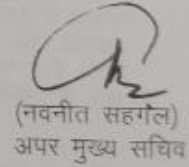 (नवनीत सहगल)
अपर मुख्य सचिव